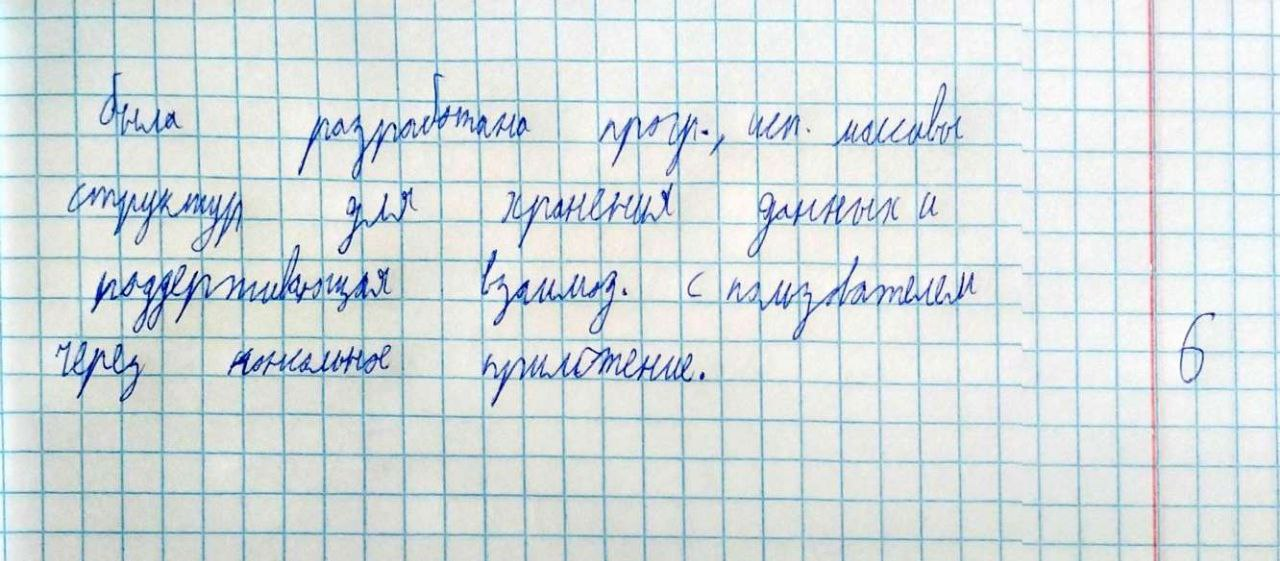 была разработана прогр., исп. массивы
структур для хранения данных и
поддерживающая взаимод. с пользователем
через приложение.
6